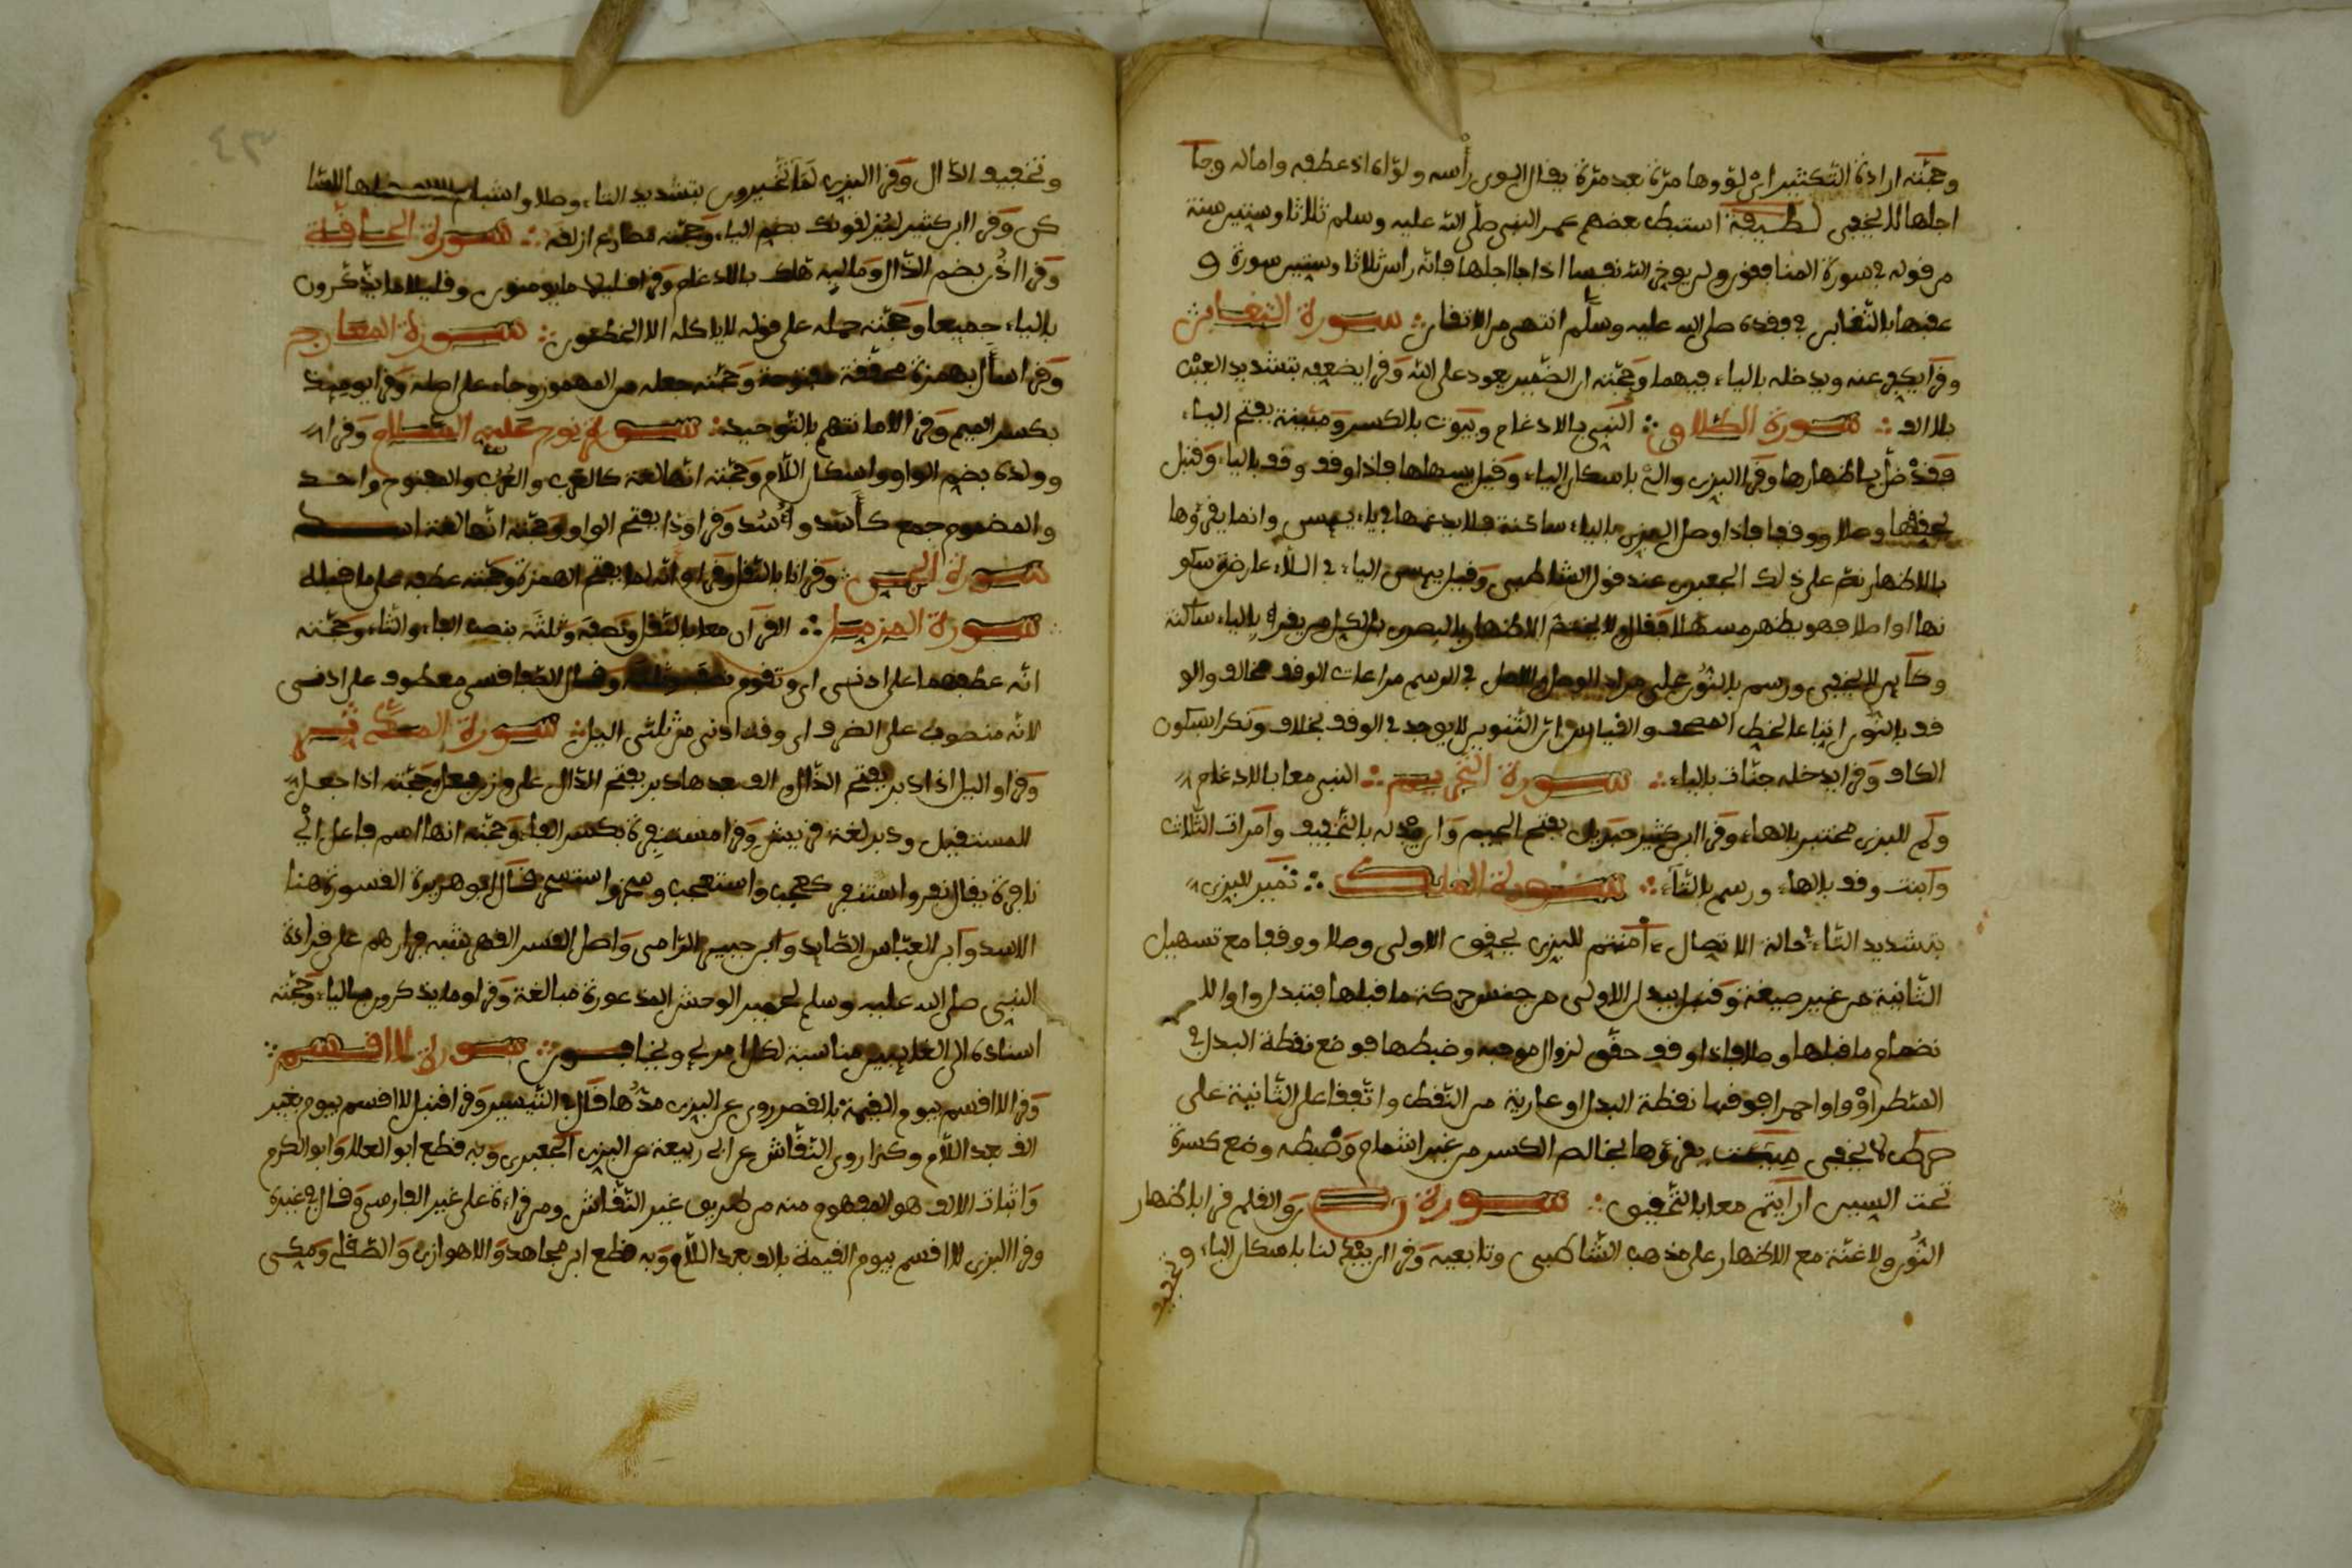 وحجته ارادة التكثير اي لووها مرة بعد مرة يقال لوى رأسه ولواه اذ عطفه واماله وجا
اجلها للاخفى لطيفة استنبط بعضهم عمر النبي صلى الله عليه وسلم ثلاثا وستين سنة
من قوله في سورة المنافقون ولن يوخر الله نفسا اذا جا اجلها فانه راس ثلاثا وستين سورة و
عقبها بالتغابن في فقده صلى الله عليه وسلم انتهى من الاتقان سورة التغابن
وقرا يكفر عنه ويدخله بالياء فيهما وحجته ان الضمير يعود على الله وقرا يضعفه بتشديد العين
بلا الف سورة الطلاق النبي بالادغام وبيوت بالكسر ومبينة بفتح الياء
فقد ضل باظهارها وقرا البزي والئ باسكان الياء وقيل يسهلها فاذا وقف وقف بالياء وقنبل
يحققها وصلا ووقفا فاذا وصل البزي بالياء ساكنة فلا يدغمها في ياء يئسن وانما يقرؤها
بالاظهار نص على ذلك الجعبري عند قول الشاطبي وقبل يئسن الياء في اللاء عارض سكو
نها او اصلا فهو يظهر مسهلا
وكأين للاخفى ورسم بالنون على مراد الوصل والاصل في الرسم مراعات الوقف مخالف والو
قف بالنون اتباعا لخط المصحف والقياس ان التنوين لا يوجد في الوقف بخلاف ونكرا اسكون
الكاف وقرا يدخله جنات بالياء سورة التحريم النبي معا بالادغام
ولم للبزي مختبر بالهاء وقرا ابن كثير جبريل بفتح الجيم وان يبدله بالتخفيف وامرات الثلاث
وابنت وقف بالهاء ورسم بالتاء سورة الملك تميز للبزي
بتشديد التاء في حالة الاتصال ءامنتم للبزي يحقق الاولى وصلا ووقفا مع تسهيل
الثانية من غير صيغة وقنبل يبدل الاولى من جنس حركة ما قبلها فتبدل واوا لا
نضمام ما قبلها وصلا فاذا وقف حقق لزوال موجبه وضبطها فوضع نقطة البدل في
السطر او واوا احمرا فوقها نقطة البدل او عارية من النقط واتفقا على الثانية على
حركـ لاخفى سيئت يقرؤها بخالص الكسر من غير اشمام وضبطه وضع كسرة
تحت السين ارايتم معا بالتحقيق سورة ن والقلم قرا باظهار
النون ولا غنة مع الاظهار على مذهب الشاطبي وتابعيه وقرا ان يبدلنا باسكان الباء و
تخفيف
٤٣
وتخفيف الدال وقرا البزي لما تخيرون بتشديد التاء وصلا واشباع
كن وقرا ابن كثير ليزلقونك بضم الياء وحجته مضارع ازلقه سورة الحاقة
وقرا اذن بضم الذال وماليه هلك بالادغام وقرا قليلا ما يومنون وقليلا ما يذكرون
بالياء جميعا وحجته حمله على قوله لا ياكله الا الخاطئون سورة المعارج
وقرا سأل بهمزة محققة مفتوحة وحجته جعله من المهموز وجاء على اصله وقرا يوميذ
بكسر الميم وقرا لامانتهم بالتوحيد سورة نوح عليه السلام وقرا
وولده بضم الواو واسكان اللام وحجته انها لغة كالعرب والعرب والمفتوح واحد
والمضموم جمع كأسد وأسد وقرا ودا بفتح الواو وحجته انها لغة اسد
سورة الجن وقرا انا بالنقل وقرا وانه لما بفتح الهمزة وحجته عطفه على ما قبله
سورة المزمل القرآن معا بالنقل ونصفه وثلثه بنصب الفاء والثاء وحجته
انه عطفهما على ادنى اي وتقوم نصفه وثلثه وقال الصفاقسي معطوف على ادنى
لانه منصوب على الظرف اي وقت ادنى من ثلثي اليل سورة المدثر
وقرا واليل اذا دبر بفتح الذال والف بعدها دبر بفتح الدال على وزن فعل وحجته اذا جعل
للمستقبل ودبر لغة قريش وقرا مستنفرة بكسر الفاء وحجته انها اسم فاعل اي
نافرة يقال نفر واستنفر كعجب واستعجب وسخر واستسخر قال ابو هريرة القسورة هنا
الاسد وابن العباس الصايد وابن جبير الرامي واصل القسر القهر شبه فرارهم على قراءة
النبي صلى الله عليه وسلم لحمير الوحش المذعورة مبالغة وقرا وما يذكرون بالياء وحجته
اسناده الى الغايبين مناسبة لكل امرئ ويخافون سورة لا اقسم
وقرا لا اقسم بيوم القيمة بالقصر روي عن البزي مدها قال في التيسير وقرا قنبل لا اقسم بيوم بغير
الف بعد اللام وكذا روى النقاش عن ابي ربيعة عن البزي الجعبري وبه قطع ابو العلا وابو الكرم
واثبات الالف هو المفهوم منه من طريق غير النقاش ومن قراءة على غير الفارسي وقال في غيره
وقرا البزي لا اقسم بيوم القيمة بالف بعد اللام وبه قطع ابن مجاهد والاهوازي والصقلي ومكي